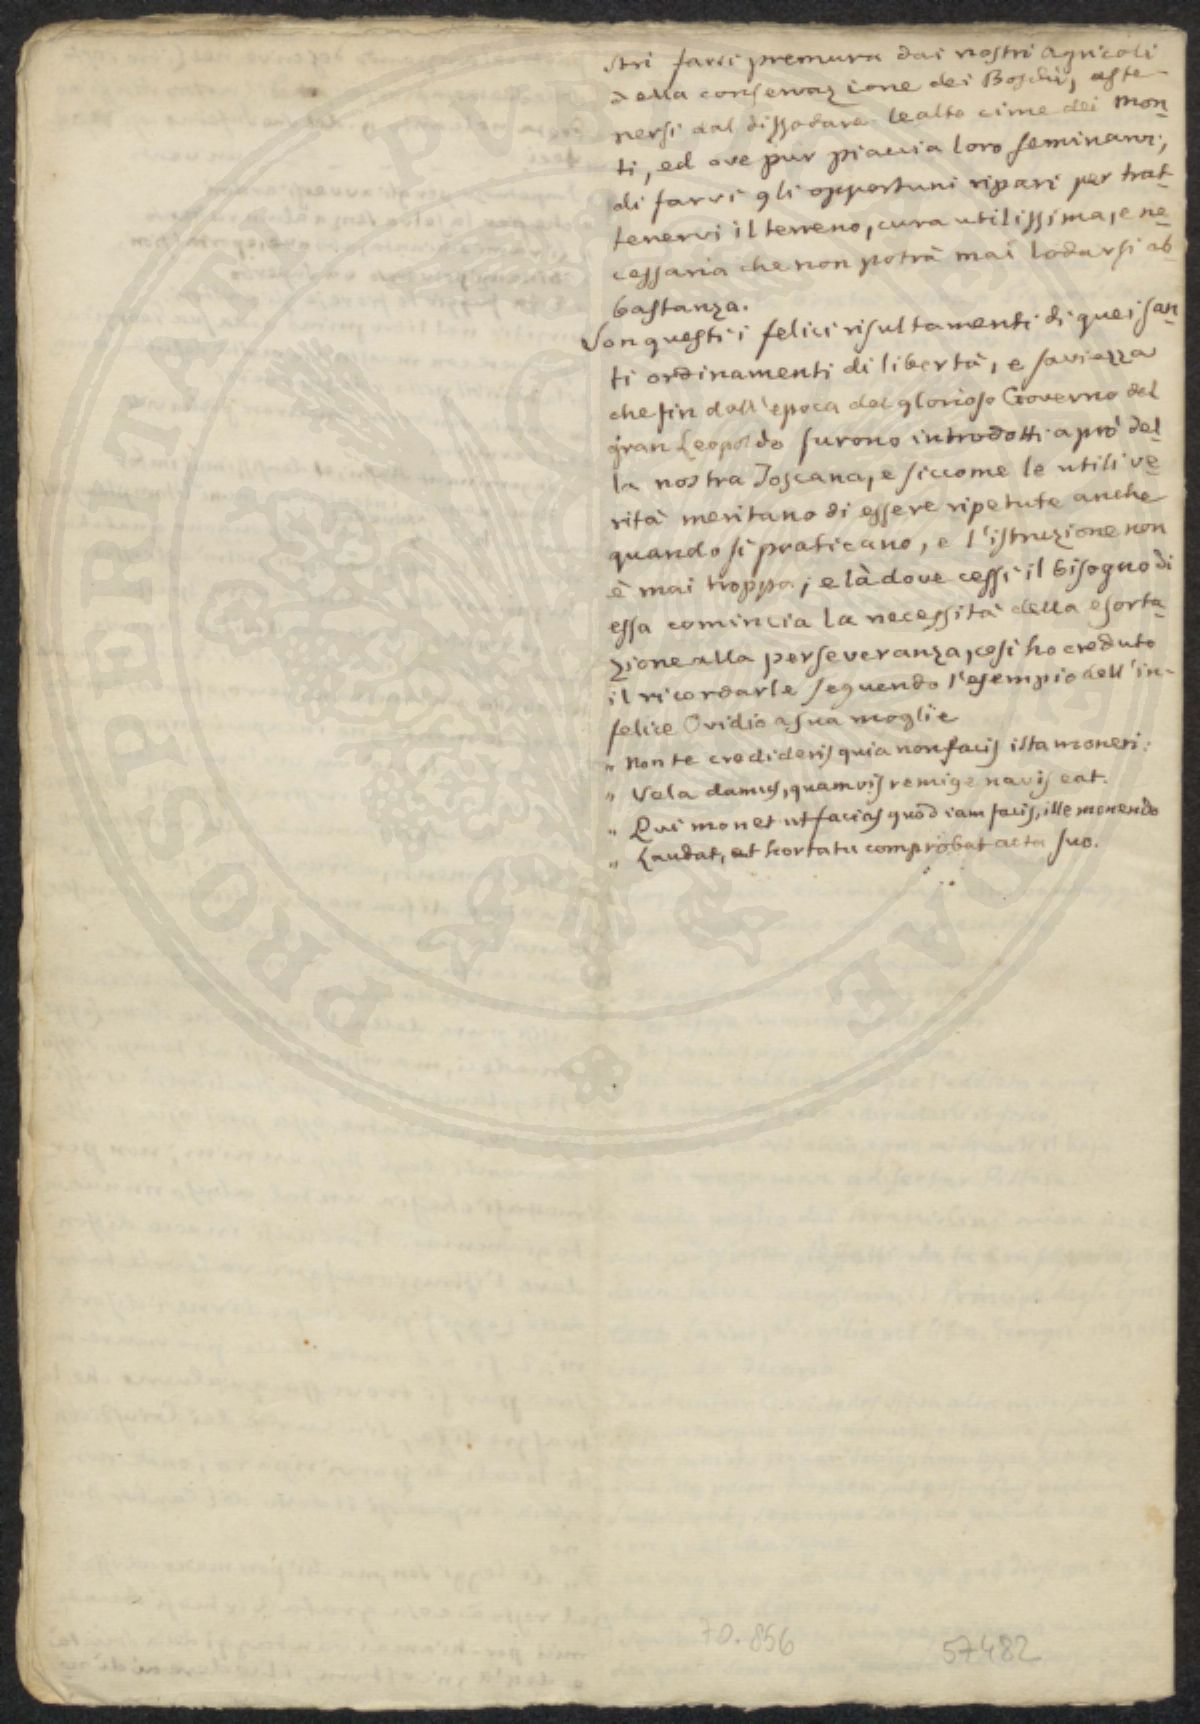 stri farsi premura dai nostri Agricoli
della conservazione dei Boschi, aste-
nersi dal dissodare le alte cime dei mon-
ti, ed ove pur piaccia loro seminarvi,
di farvi gli opportuni ripari per trat-
tenervi il terreno, cura utilissima, e ne-
cessaria che non potrà mai lodarsi ab-
bastanza.
Son questi i felici risultamenti di quei san-
ti ordinamenti di libertà, e saviezza
che fin dall'epoca del glorioso Governo del
gran Leopoldo furono introdotti a prò del-
la nostra Toscana, e siccome le utili ve-
rità meritano di essere ripetute anche
quando si praticano, e l'istruzione non
è mai troppa, e là dove cessi il bisogno di
essa comincia la necessità della esorta-
zione alla perseveranza, così ho creduto
il ricordarle seguendo l'esempio dell'in-
felice Ovidio a sua moglie
" Non te credideris quia non facis ista moneri:
" Vela damus, quamvis remige navis eat.
" Qui monet ut facias quod iam facis, ille monendo
" Laudat, et hortatu comprobat acta suo.
70.856
57482
PROSPERITATI PUBLICAE